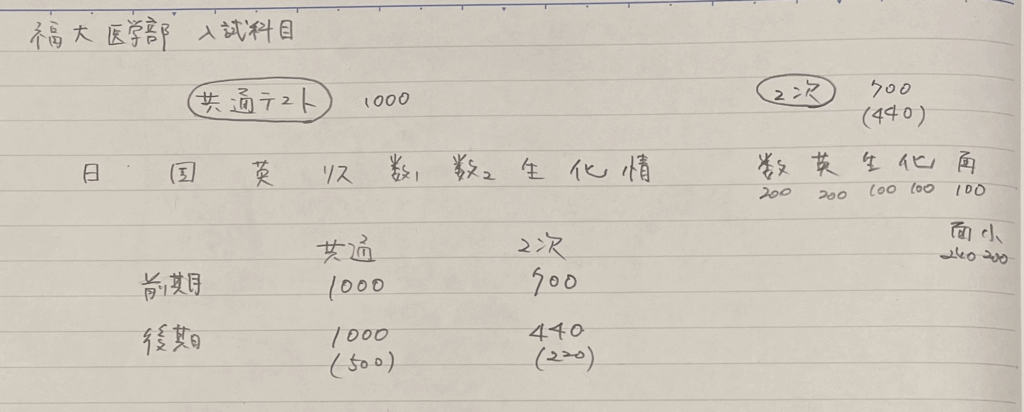 福大医学部 入試科目
共通テスト 1000 2次 700
(440)
日 国 英 リス 数1 数2 生 化 情 数 英 生 化 面
200 200 100 100 100
面 小
240 200
共通 2次
前期 1000 700
後期 1000 440
(500) (220)